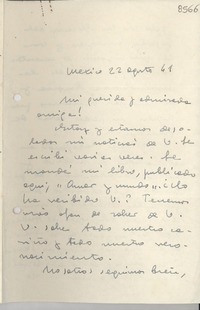 8566
Mexico 22 agosto 41
Mi querida y admirada
amiga!
Estoy y estamos deso-
lados sin noticias de V. Le
escribí varias veces. Le
mandé mi libro, publicado
aquí, "Amor y mundo". ¿Lo
ha recibido V.? Tenemos
más afán de saber de V.
V. sabe todo nuestro ca-
riño y todo nuestro reco-
nocimiento.
Nosotros seguimos bien,